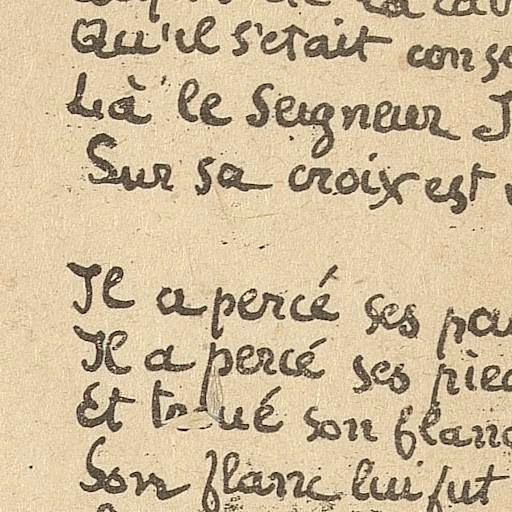 Qu'il s'etait
Là le Seigneur
Sur sa croix est
Il a percé ses
Il a percé ses
Et troué son flanc
Son flanc lui fut